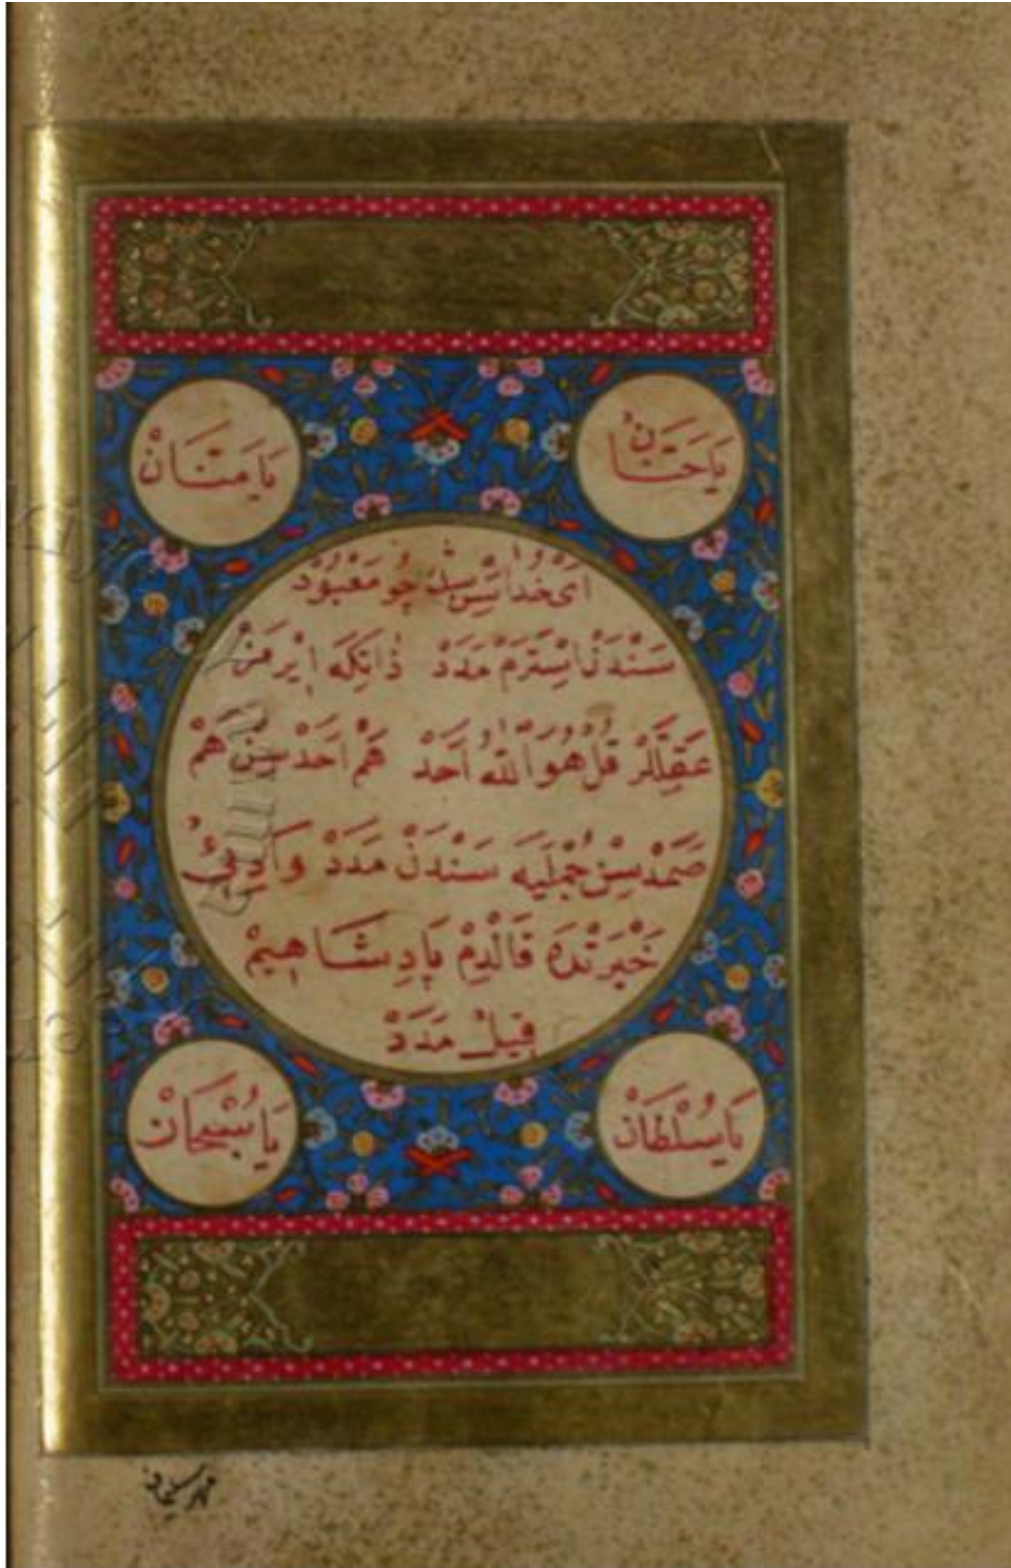 يَا حَنَّانُ
يَا مَنَّانْ
اَىْ خُدَا سِنْسِنْ چُو مَعْبُودْ
سَنْدَنْ اِسْتَرَمْ مَدَدْ ذَانِكَه اِيرْمَزْ
عَقِللَرْ قُلْ هُوَ اَللّٰهُ اَحَدْ هَمْ اَحَدْ سِنْ هَمْ
صَمَدْ سِنْ جُمْلَيَه سَنْدَنْ مَدَدْ وَادِئِ
حَيْرَتْدَه قَالْدِمْ پَادِشَاهِيمْ
قِيلْ مَدَدْ
يَا سُلْطَانْ
يَا سُبْحَانْ